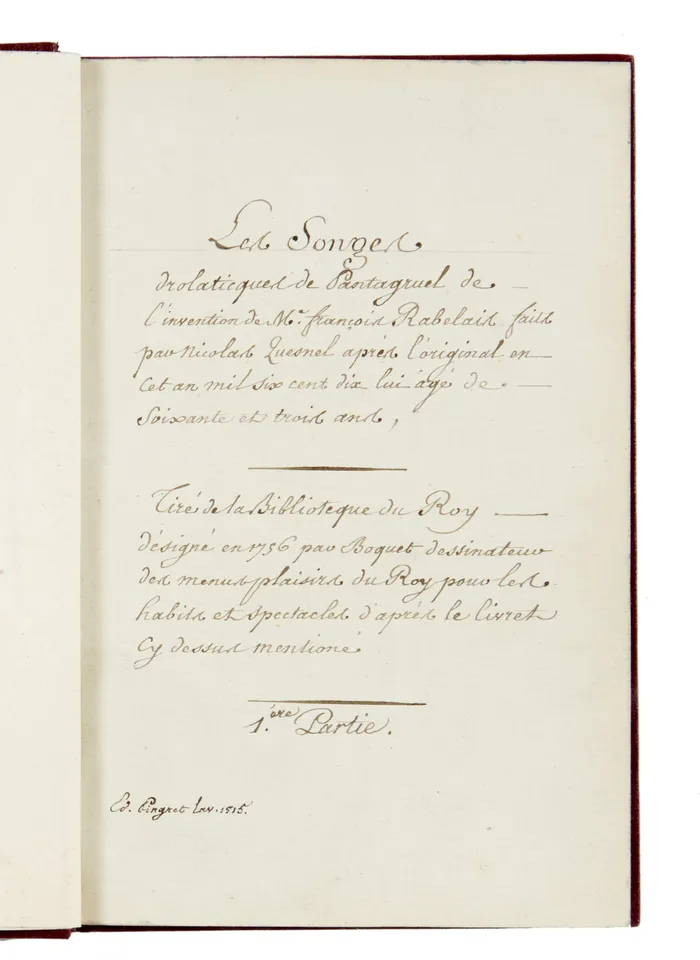 Les Songes
drolaticques de Pantagruel de
l'invention de Mr. françois Rabelais faits
par Nicolas Quesnel après l'original en
cet an mil six cent dix lui âgé de
Soixante et trois ans,
Tiré de la Biblioteque du Roy
désigné en 1756 par Boquet dessinateur
des menus plaisirs du Roy pour les
habits et spectacles d'après le livret
Cy dessus mentioné
1.ère Partie.
Ed. Pingret